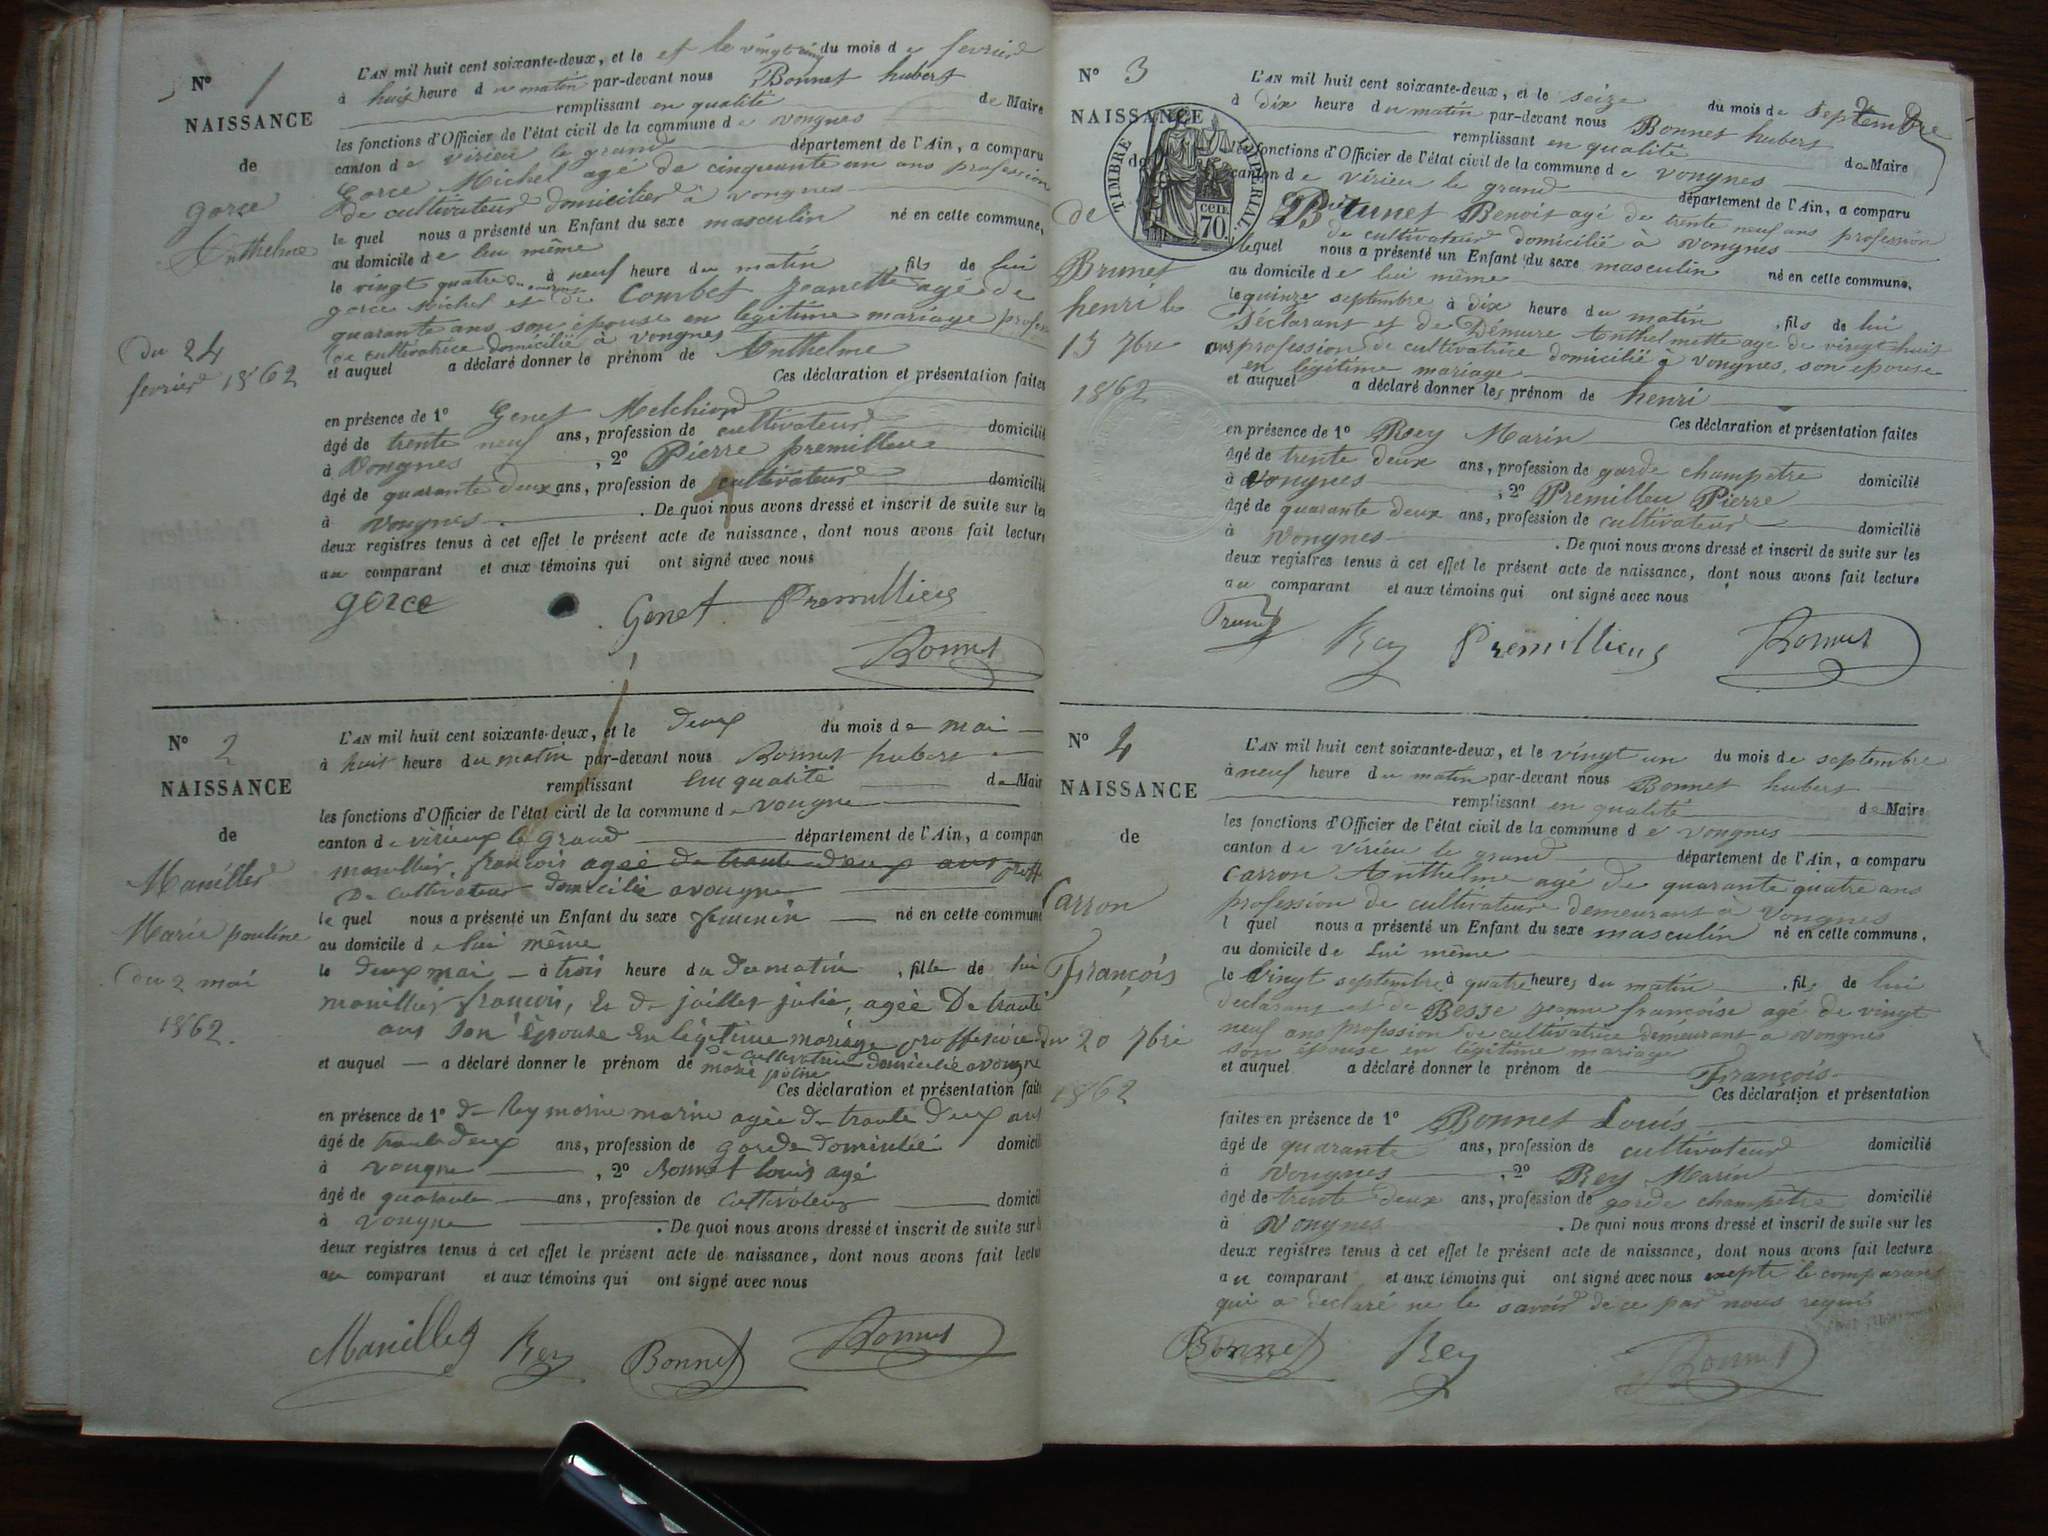 N° 1
NAISSANCE
de
gorge
Anthelme
du 24
fevrier 1862
L'AN mil huit cent soixante-deux, et le et le vingt cinq du mois de fevrier
à huit heure du matin par-devant nous Bonnet hubert
remplissant en qualité de Maire
les fonctions d'Officier de l'état civil de la commune de vongnes
canton de virieu le grand département de l'Ain, a comparu
Gorce Michel agé de cinquante un ans profession
de cultivateur domicilier à vongnes
le quel nous a présenté un Enfant du sexe masculin né en cette commune,
au domicile de lui même
le vingt quatre du courant à neuf heure du matin, fils de lui
gorce Michel et de Combet jeanette agé de
quarante ans son épouse en légitime mariage profess
de cultivatrice domicilié à vongnes
et auquel a déclaré donner le prénom de Anthelme
Ces déclaration et présentation faites
en présence de 1° Genet Melchiord
âgé de trente neuf ans, profession de cultivateur domicilié
à Vongnes, 2° Pierre premillieu
âgé de quarante deux ans, profession de cultivateur domicilié
à vongnes. De quoi nous avons dressé et inscrit de suite sur les
deux registres tenus à cet effet le présent acte de naissance, dont nous avons fait lecture
au comparant et aux témoins qui ont signé avec nous
gorce Genet Premillieu
Bonnet
N° 2
NAISSANCE
de
Manillier
Marie pauline
du 2 mai
1862.
L'AN mil huit cent soixante-deux, et le deux du mois de mai
à huit heure du matin par-devant nous Bonnet hubert
remplissant en qualité de Mair
les fonctions d'Officier de l'état civil de la commune de vougne
canton de virieux le grand département de l'Ain, a compar
manillier francois agée de trante deux ans proff
De cultivateur domicilié a vougne
le quel nous a présenté un Enfant du sexe femenin né en cette commune
au domicile de lui même
le deux mai à trois heure du du matin, fille de lui
manillier francois, Et de jaillet julie, agée De trante
ans Son Epouse En légitime mariage proffesion
cultivatrice domiciliée a vougne
et auquel a déclaré donner le prénom de marie poline
Ces déclaration et présentation faite
en présence de 1° de Rey marin marin agée de trante deux ans
âgé de trante deux ans, profession de garde domiciliée domicil
à vougne, 2° Bonnet louis agé
âgé de quarante ans, profession de Cultivateur domicil
à vougne. De quoi nous avons dressé et inscrit de suite sur l
deux registres tenus à cet effet le présent acte de naissance, dont nous avons fait lectu
au comparant et aux témoins qui ont signé avec nous
Manillier Rey Bonnet Bonnet
N° 3
NAISSANCE
de
de
Brunet
henri le
15 7bre
1862
TIMBRE IMPERIAL
70 cen.
L'AN mil huit cent soixante-deux, et le seize du mois de septembre
à dix heure du matin par-devant nous Bonnet hubert
remplissant en qualité de Maire
les fonctions d'Officier de l'état civil de la commune de vongnes
canton de virieu le grand département de l'Ain, a comparu
Brunet Benoit agé de trente neuf ans profession
de cultivateur domicilié à vongnes
lequel nous a présenté un Enfant du sexe masculin né en cette commune,
au domicile de lui même
le quinze septembre à dix heure du matin, fils de lui
déclarant et de Démure Anthelmette age de vingt huit
ans profession de cultivatrice domicilié à vongnes, son epouse
en légitime mariage
et auquel a déclaré donner les prénom de henri
Ces déclaration et présentation faites
en présence de 1° Rey Marin
âgé de trente deux ans, profession de garde champetre domicilié
à vongnes, 2° Premilleu Pierre
âgé de quarante deux ans, profession de cultivateur domicilié
à Vongnes. De quoi nous avons dressé et inscrit de suite sur les
deux registres tenus à cet effet le présent acte de naissance, dont nous avons fait lecture
au comparant et aux témoins qui ont signé avec nous
Rey Premillieu Bonnet
N° 4
NAISSANCE
de
Carron
François
du 20 7bre
1862
L'AN mil huit cent soixante-deux, et le vingt un du mois de septembre
à neuf heure du matin par-devant nous Bonnet hubert
remplissant en qualité de Maire
les fonctions d'Officier de l'état civil de la commune de vongnes
canton de virieu le grand département de l'Ain, a comparu
Carron Anthelme agé de quarante quatre ans
profession de cultivateur demeurant à vongnes
l quel nous a présenté un Enfant du sexe masculin né en cette commune,
au domicile de Lui même
le vingt septembre à quatre heures du matin, fils de lui
declarant et de Besse jeanne francoise agé de vingt
neuf ans profession de cultivatrice demeurant a vongnes
son épouse en légitime mariage
et auquel a déclaré donner le prénom de François
Ces déclaration et présentation
faites en présence de 1° Bonnet Louis
âgé de quarante ans, profession de cultivateur domicilié
à vongnes, 2° Rey Marin
âgé de trente deux ans, profession de garde champêtre domicilié
à Vongnes. De quoi nous avons dressé et inscrit de suite sur les
deux registres tenus à cet effet le présent acte de naissance, dont nous avons fait lecture
au comparant et aux témoins qui ont signé avec nous exepté le comparant
qui a declaré ne le savoir de ce par nous requis
Bonnet Rey Bonnet